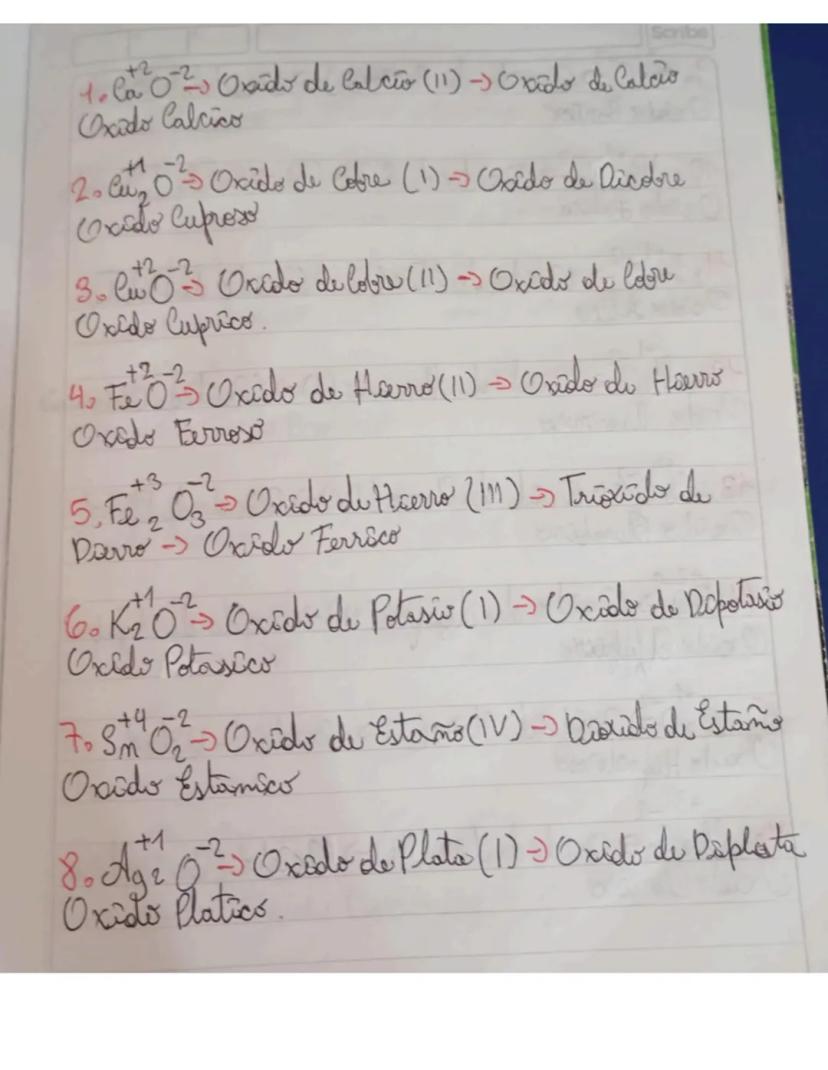 Scribe
1. Ca⁺² O⁻² → Oxido de Calcio (II) → Oxido de Calcio
Oxido Calcico
2. Cu₂⁺¹ O⁻² → Oxido de Cobre (I) → Oxido de Dicobre
Oxido Cuproso
3. Cu⁺² O⁻² → Oxido de Cobre (II) → Oxido de Cobre
Oxido Cuprico.
4. Fe⁺² O⁻² → Oxido de Hierro (II) → Oxido de Hierro
Oxido Ferroso
5. Fe₂⁺³ O₃⁻² → Oxido de Hierro (III) → Trioxido de
Dierro → Oxido Ferrico
6. K₂⁺¹ O⁻² → Oxido de Potasio (I) → Oxido de Dipotasio
Oxido Potasico
7. Sn⁺⁴ O₂⁻² → Oxido de Estaño (IV) → Dioxido de Estaño
Oxido Estanico
8. Ag₂⁺¹ O⁻² → Oxido de Plata (I) → Oxido de Diplata
Oxido Platico.